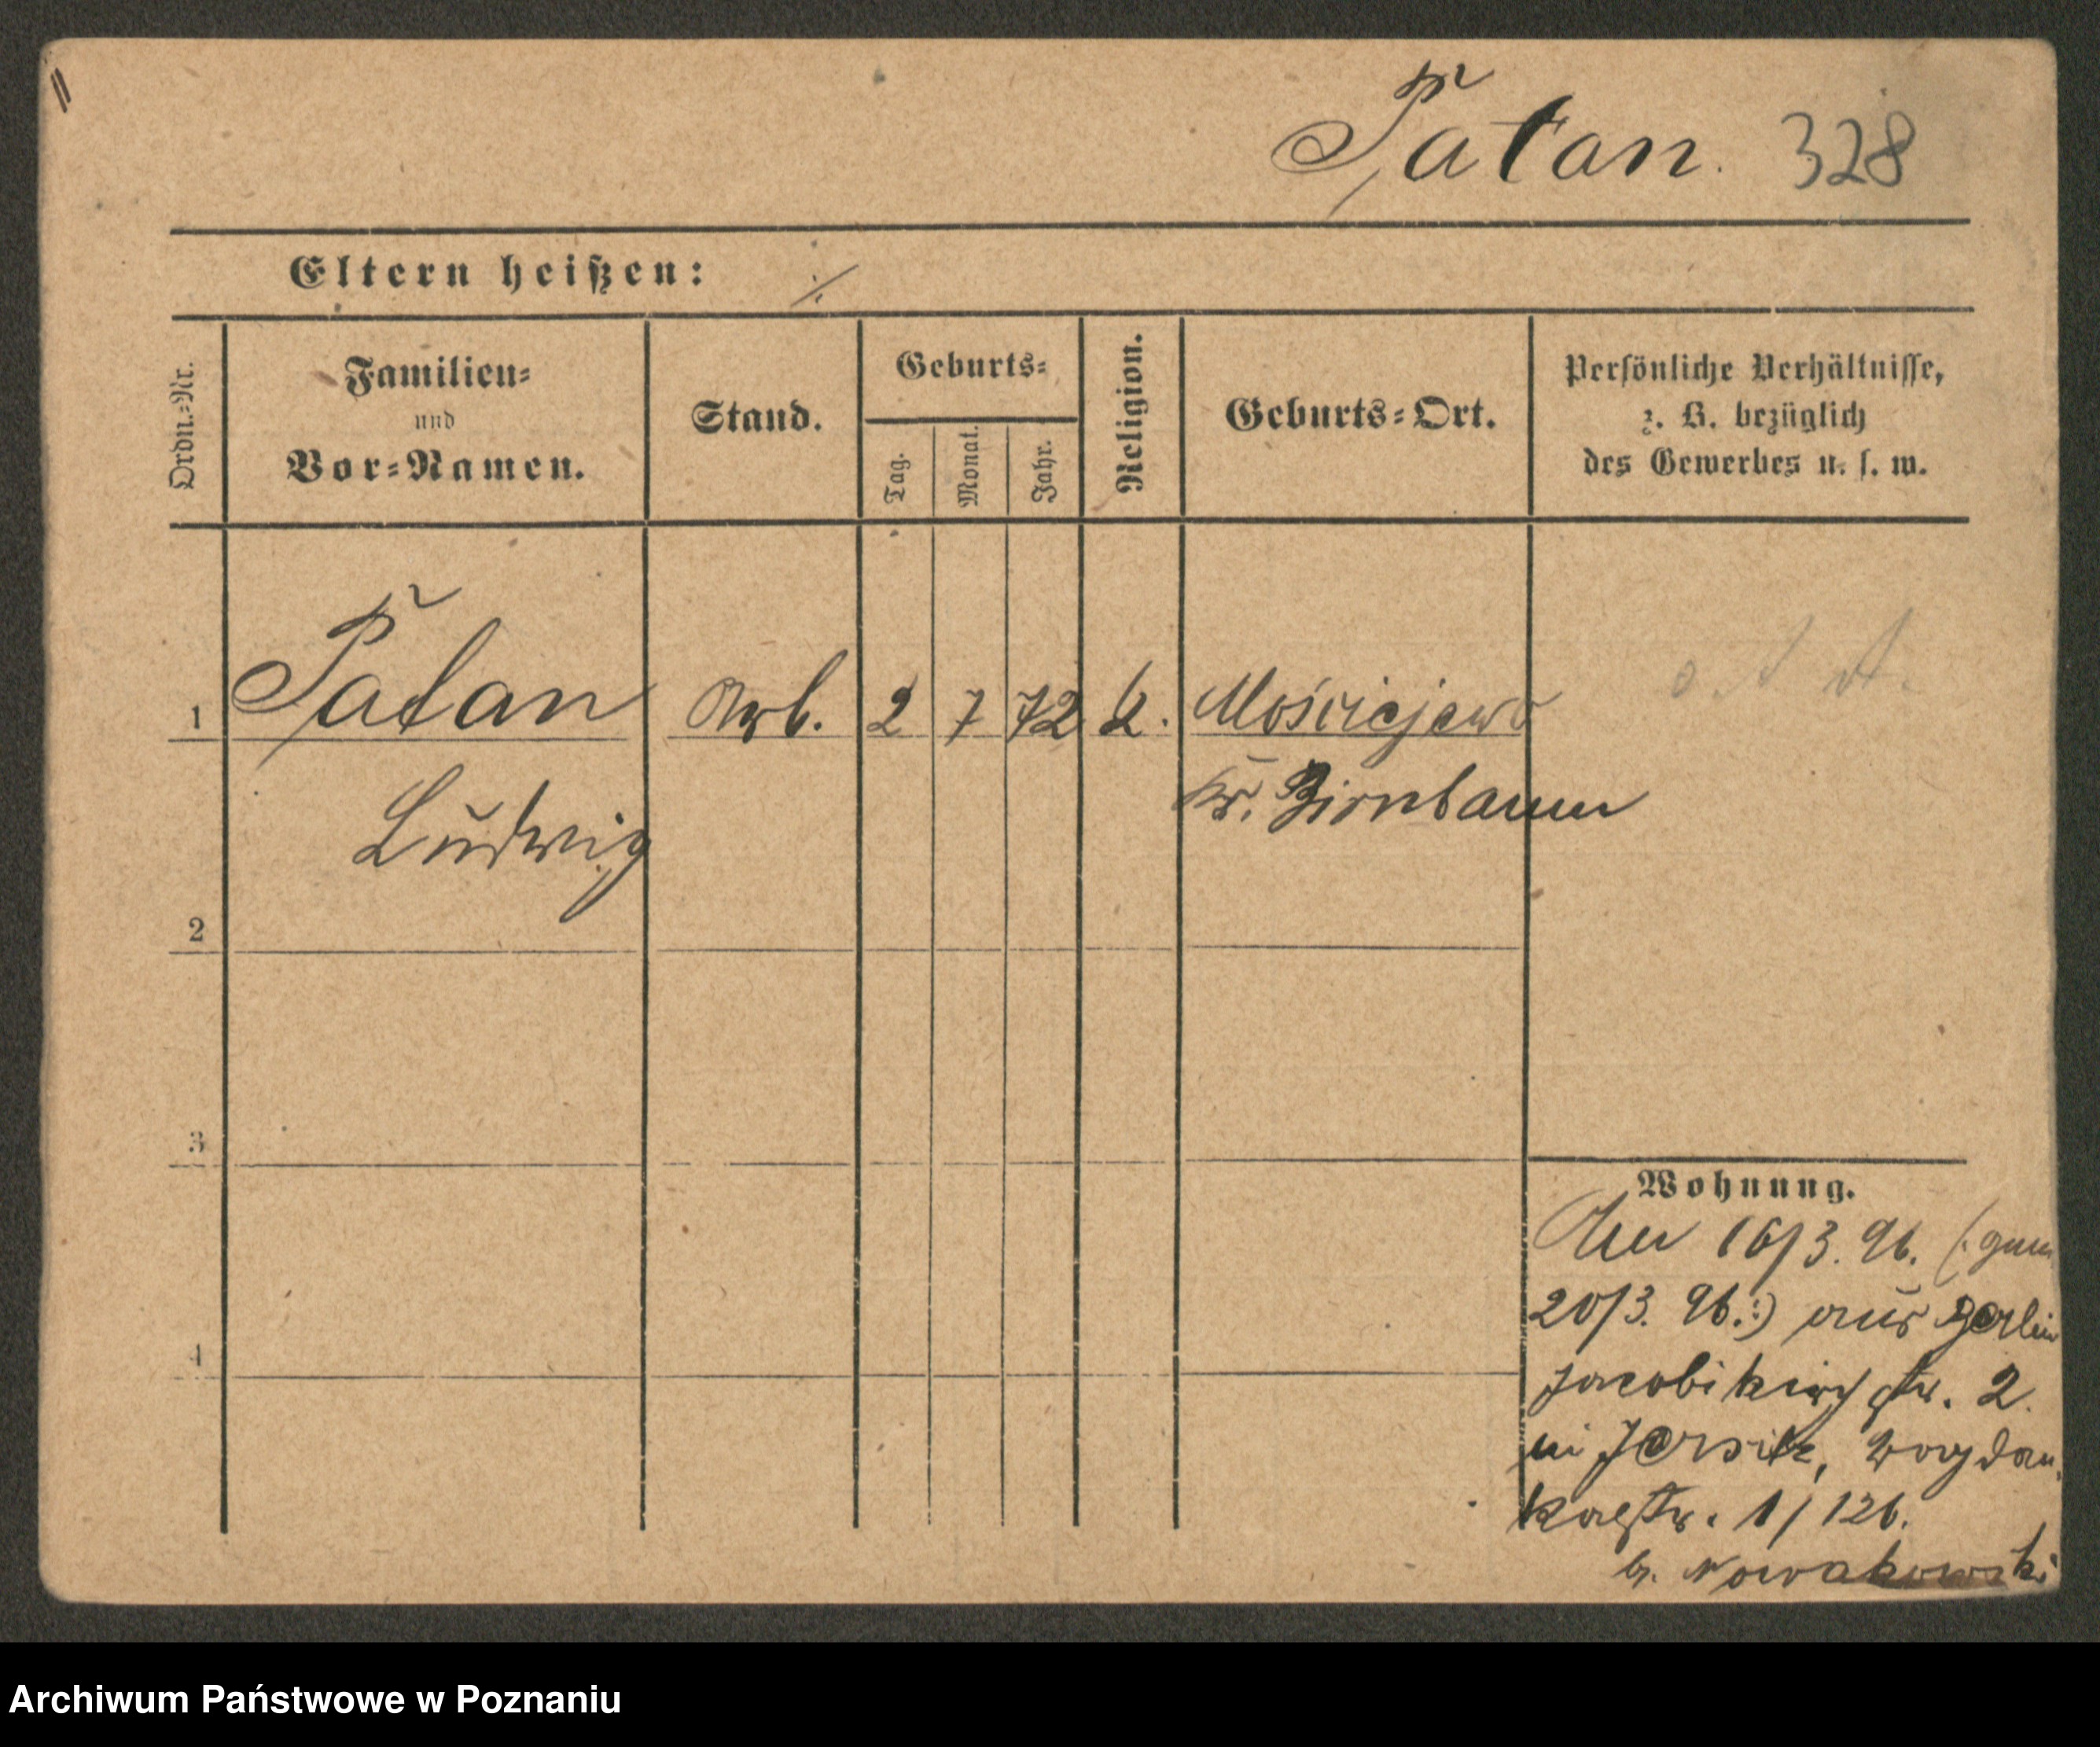 Patan. 328
Eltern heißen: ./.
Ordn.=Nr.
Familien=
und
Vor=Namen.
Stand.
Geburts=
Tag.
Monat.
Jahr.
Religion.
Geburts=Ort.
Persönliche Verhältnisse,
z. B. bezüglich
des Gewerbes u. s. w.
1 Patan Arb. 2 7 72 k. Mościejewo
Kr. Birnbaum
Ludwig
2
3
4
Wohnung.
16/3. 96. (: gem
20/3. 96. :) aus Berlin
Jacobikirchstr. 2.
in Jersitz, Bogdan
kaestr. 1/126.
b. Nowakowski
Archiwum Państwowe w Poznaniu